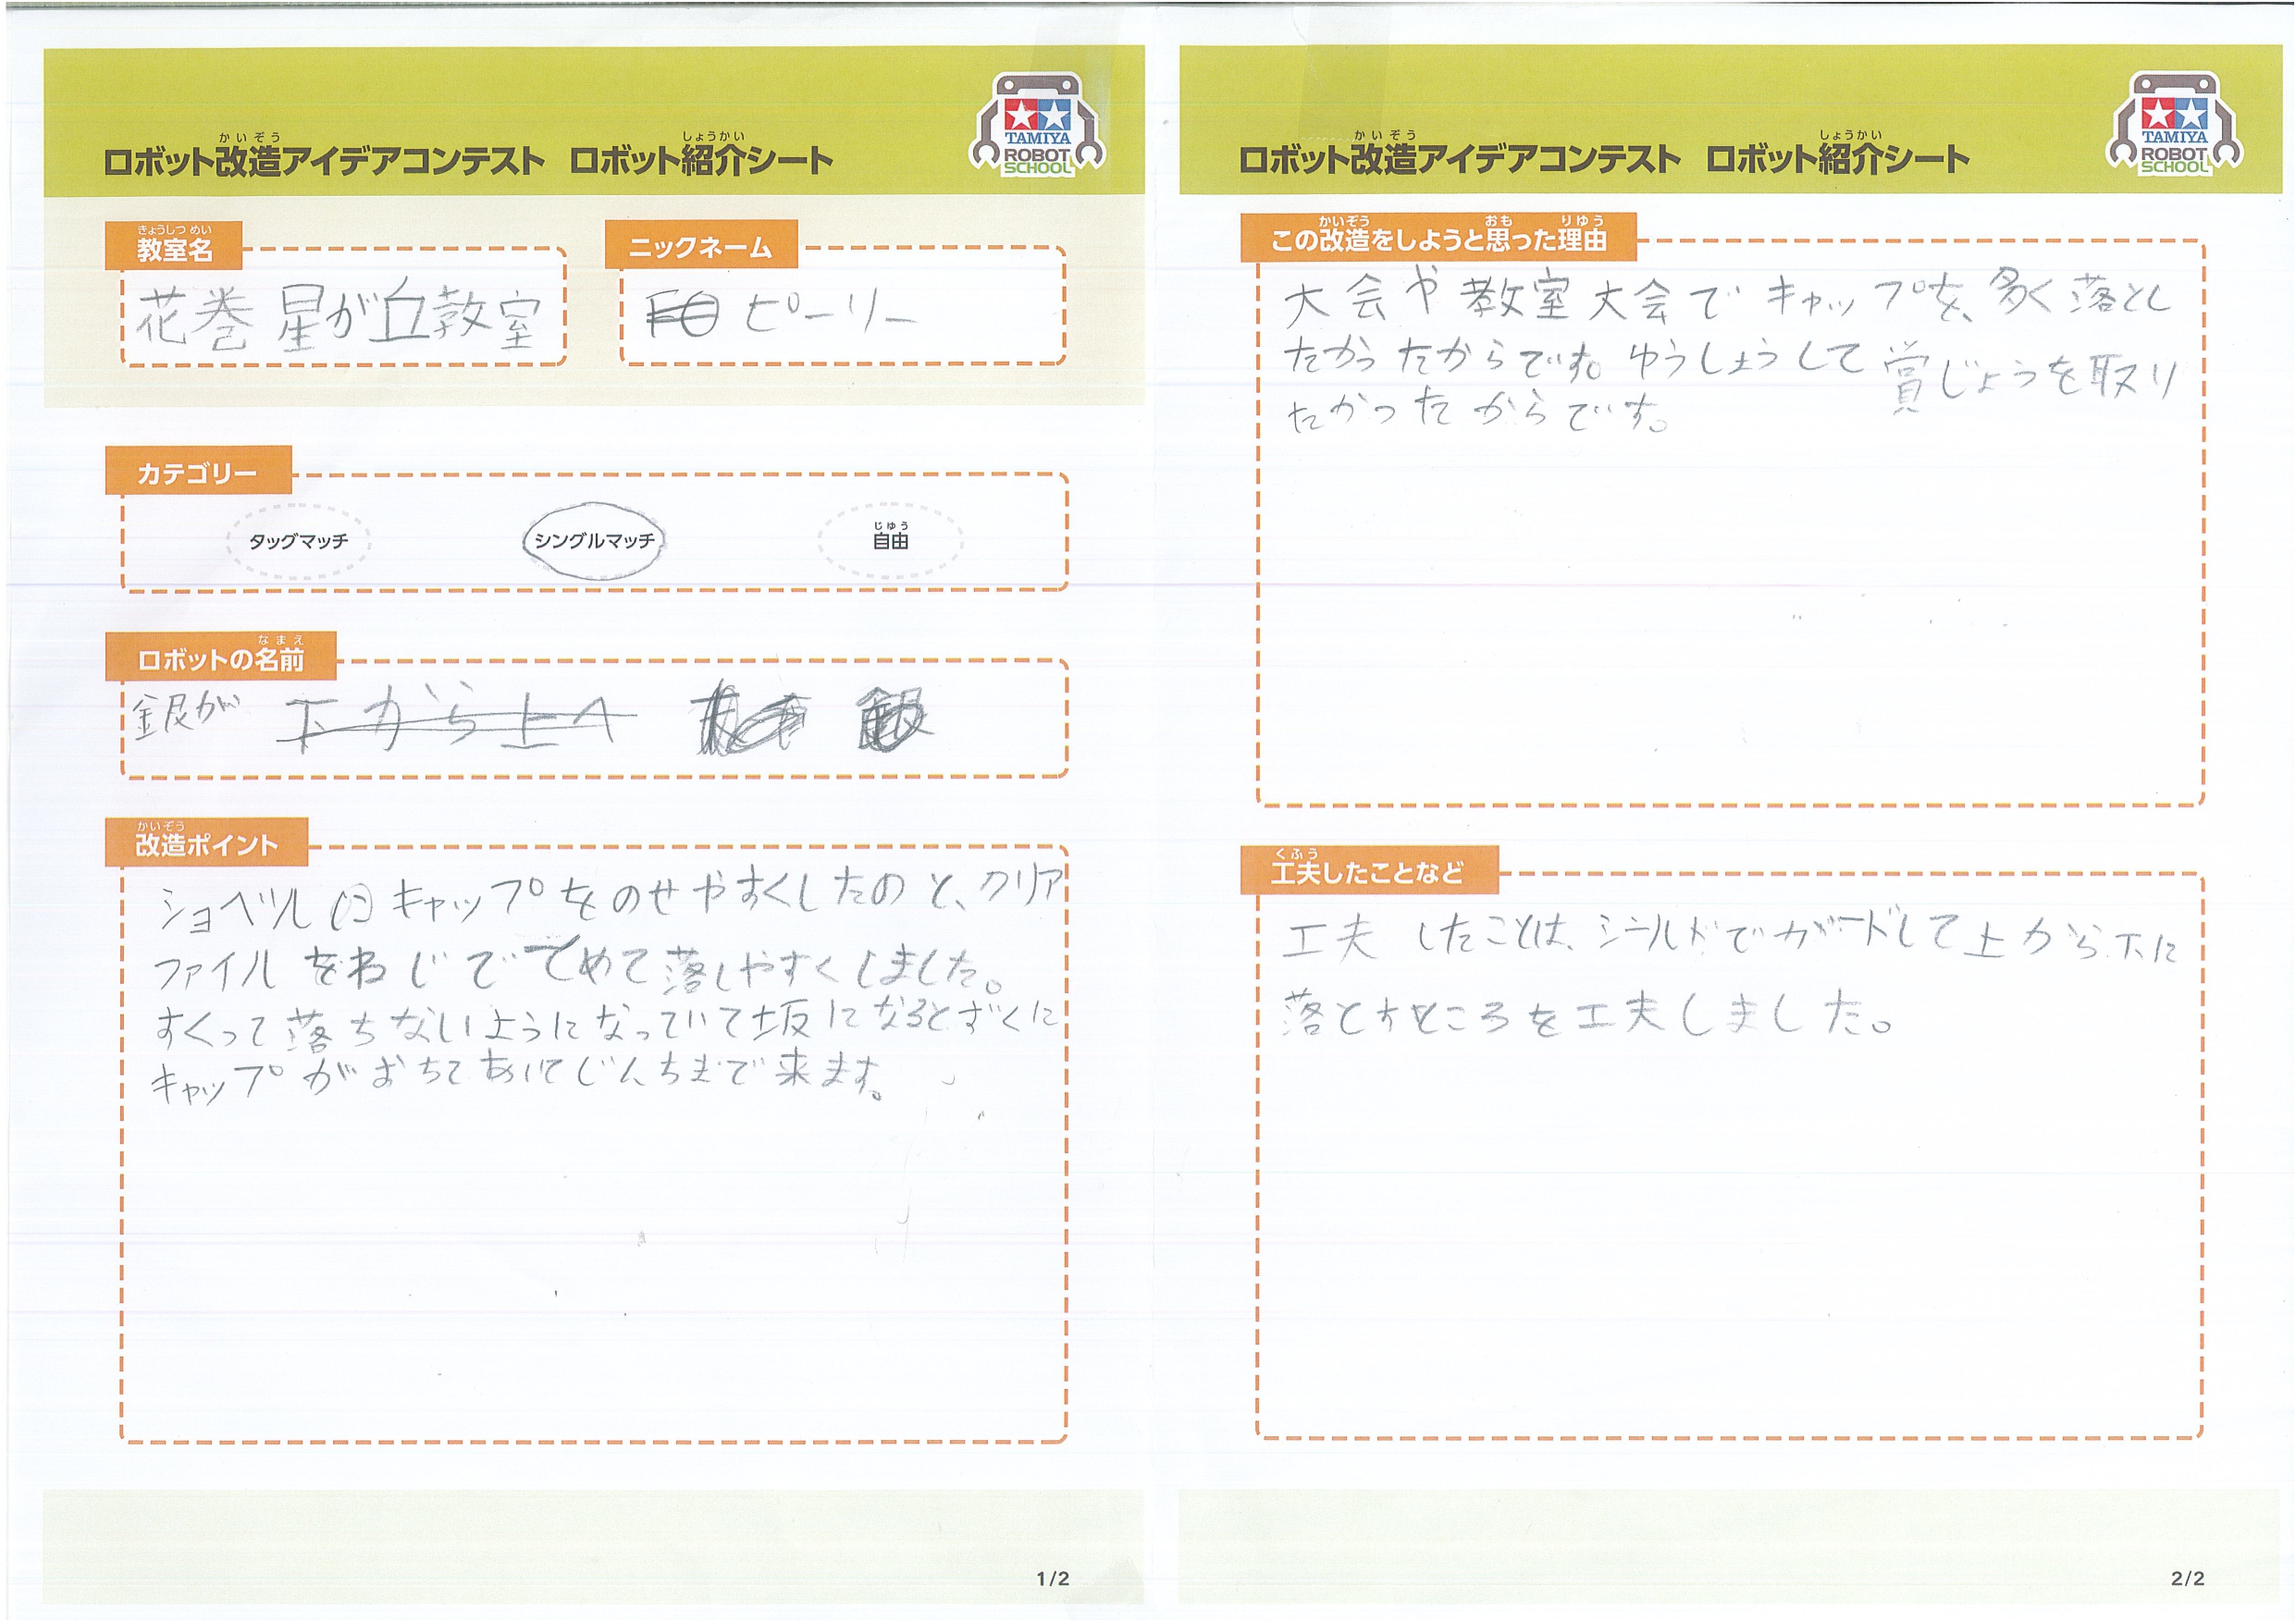 かいぞう しょうかい
ロボット改造アイデアコンテスト ロボット紹介シート
TAMIYA
ROBOT
SCHOOL
きょうしつ めい
教室名
花巻星が丘教室
ニックネーム
ピーリー
カテゴリー
タッグマッチ
シングルマッチ
じゆう
自由
なまえ
ロボットの名前
銀が 下から上へ
かいぞう
改造ポイント
ショベル キャップをのせやすくしたのと、クリア
ファイルをねじでてめて落しやすくしました。
すくって落ちないようになっていて坂になるとずくに
キャップがおちてあいてじんちまで来ます。
1/2
かいぞう しょうかい
ロボット改造アイデアコンテスト ロボット紹介シート
TAMIYA
ROBOT
SCHOOL
かいぞう おも りゆう
この改造をしようと思った理由
大会や教室大会でキャップを、多く落とし
たかったからです。ゆうしょうして賞じょうを取り
たかったからです。
くふう
工夫したことなど
工夫したことは、シールドでガードして上から下に
落とすところを工夫しました。
2/2